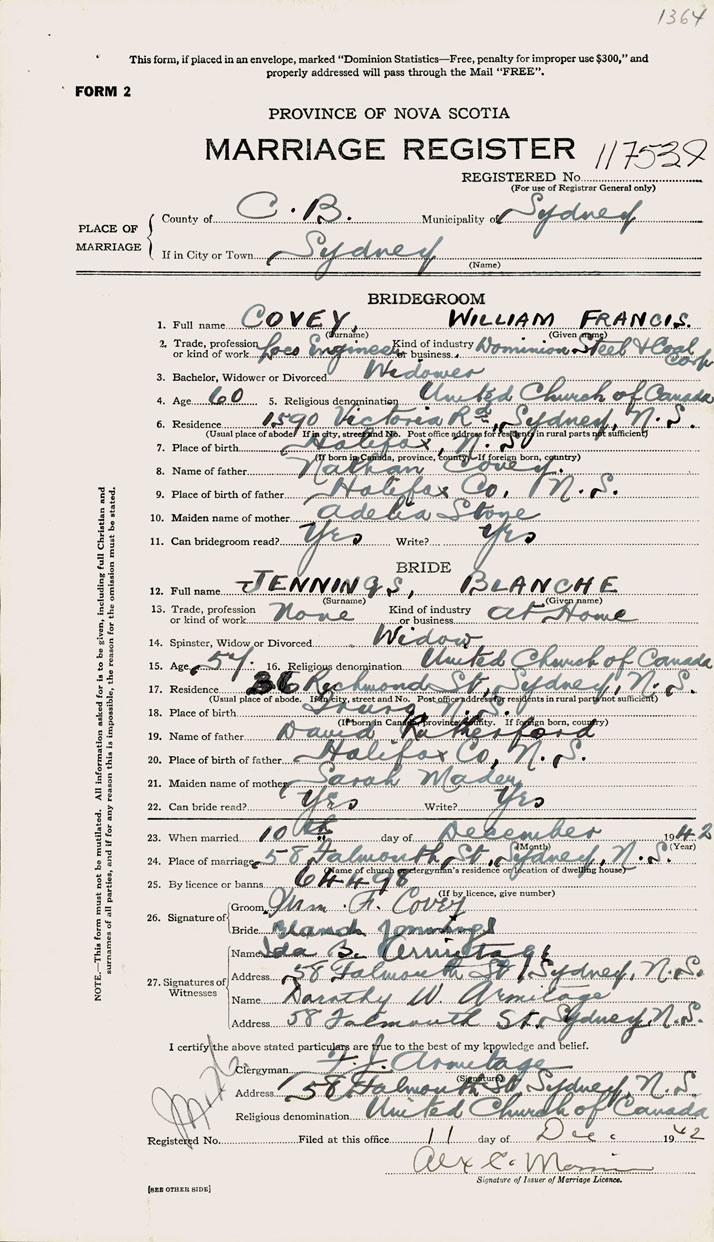 1364
This form, if placed in an envelope, marked "Dominion Statistics—Free, penalty for improper use $300," and
properly addressed will pass through the Mail "FREE".
FORM 2
PROVINCE OF NOVA SCOTIA
MARRIAGE REGISTER
REGISTERED No. 117539
(For use of Registrar General only)
PLACE OF MARRIAGE
County of C. B. Municipality of Sydney
If in City or Town Sydney
(Name)
BRIDEGROOM
1. Full name COVEY, WILLIAM FRANCIS.
(Surname) (Given name)
2. Trade, profession or kind of work Loco Engineer Kind of industry or business Dominion Steel & Coal Corp
3. Bachelor, Widower or Divorced Widower
4. Age 60 5. Religious denomination United Church of Canada
6. Residence 1590 Victoria Rd., Sydney, N. S.
(Usual place of abode. If in city, street and No. Post office address for residents in rural parts not sufficient)
7. Place of birth Halifax, N. S.
(If born in Canada, province, county. If foreign born, country)
8. Name of father Nathan Covey.
9. Place of birth of father Halifax Co, N. S.
10. Maiden name of mother Adelia Stone
11. Can bridegroom read? Yes Write? Yes
BRIDE
12. Full name JENNINGS, BLANCHE
(Surname) (Given name)
13. Trade, profession or kind of work None Kind of industry or business At Home
14. Spinster, Widow or Divorced Widow
15. Age 57. 16. Religious denomination United Church of Canada
17. Residence 36 Richmond St., Sydney, N. S.
(Usual place of abode. If in city, street and No. Post office address for residents in rural parts not sufficient)
18. Place of birth N. S.
(If born in Canada, province, county. If foreign born, country)
19. Name of father David Rutherford
20. Place of birth of father Halifax Co, N. S.
21. Maiden name of mother Sarah Mader
22. Can bride read? Yes Write? Yes
23. When married 10th day of December 1942
(Month) (Year)
24. Place of marriage 58 Falmouth St., Sydney, N. S.
(Name of church or clergyman's residence or location of dwelling house)
25. By licence or banns 64498
(If by licence, give number)
26. Signature of
Groom Wm. F. Covey
Bride Blanch Jennings
27. Signatures of Witnesses
Name Ida B. Armitage
Address 58 Falmouth St., Sydney, N.S.
Name Dorothy W. Armitage
Address 58 Falmouth St., Sydney N.S.
I certify the above stated particulars are true to the best of my knowledge and belief.
Clergyman F. J. Armitage
(Signature)
Address 58 Falmouth St Sydney, N. S.
Religious denomination United Church of Canada
Registered No. Filed at this office 11 day of Dec. 1942
Alx C.
Signature of Issuer of Marriage Licence.
[SEE OTHER SIDE]
NOTE.—This form must not be mutilated. All information asked for is to be given, including full Christian and
surnames of all parties, and if for any reason this is impossible, the reason for the omission must be stated.